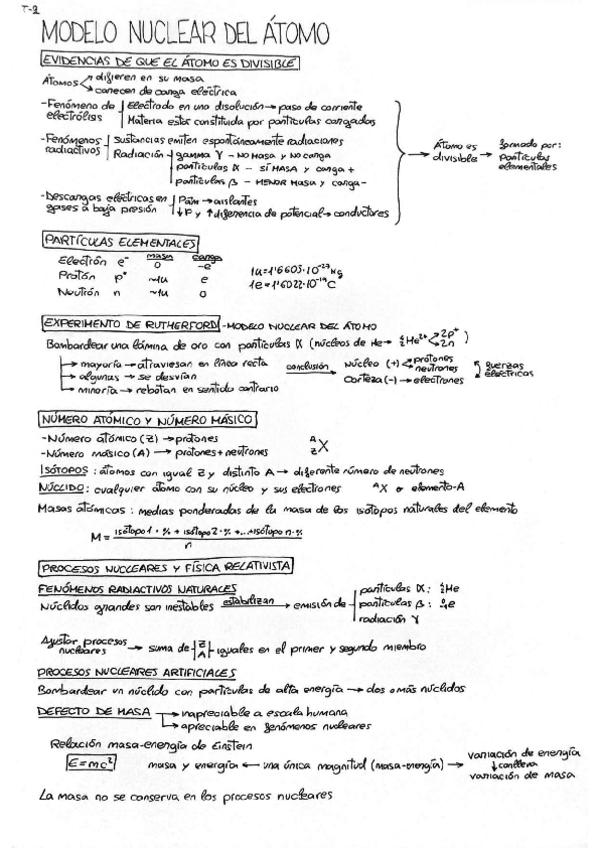 T-2
MODELO NUCLEAR DEL ÁTOMO
EVIDENCIAS DE QUE EL ÁTOMO ES DIVISIBLE
Átomos
difieren en su masa
carecen de carga eléctrica
-Fenómeno de electrólisis
Electrodo en una disolución → paso de corriente
Materia estar constituida por partículas cargadas
-Fenómenos radiactivos
Sustancias emiten espontáneamente radiaciones
Radiación
gamma γ - NO MASA y NO CARGA
partículas α - SÍ MASA y CARGA +
partículas β - MENOR MASA y CARGA -
-Descargas eléctricas en gases a baja presión
Patm → aislantes
↓P y ↑diferencia de potencial → conductores
→ Átomo es divisible → formado por: partículas elementales
PARTÍCULAS ELEMENTALES
masa carga
Electrón e⁻ 0 -e
Protón p⁺ ~1u e
Neutrón n ~1u 0
1u = 1'6605·10⁻²⁷ kg
1e = 1'6022·10⁻¹⁹ C
EXPERIMENTO DE RUTHERFORD - MODELO NUCLEAR DEL ÁTOMO
Bombardear una lámina de oro con partículas α (núcleos de He → ⁴₂He²⁺ 2p⁺ 2n)
→ mayoría → atraviesan en línea recta
→ algunas → se desvían
→ minoría → rebotan en sentido contrario
conclusión →
Núcleo (+) protones neutrones
Corteza (-) → electrones
fuerzas eléctricas
NÚMERO ATÓMICO Y NÚMERO MÁSICO
-Número atómico (Z) → protones
-Número másico (A) → protones + neutrones
ᴬzX
ISÓTOPOS: átomos con igual Z y distinto A → diferente número de neutrones
NÚCLIDO: cualquier átomo con su núcleo y sus electrones ᴬX o elemento-A
Masas atómicas: medias ponderadas de la masa de los isótopos naturales del elemento
M = isótopo 1 · % + isótopo 2 · % + ... + isótopo n · %
n
PROCESOS NUCLEARES Y FÍSICA RELATIVISTA
FENÓMENOS RADIACTIVOS NATURALES
Núclidos grandes son inestables estabilizan → emisión de
partículas α: ⁴₂He
partículas β: ⁰₋₁e
radiación γ
Ajustar procesos nucleares → suma de Z A iguales en el primer y segundo miembro
PROCESOS NUCLEARES ARTIFICIALES
Bombardear un núclido con partículas de alta energía → dos o más núclidos
DEFECTO DE MASA
→ inapreciable a escala humana
→ apreciable en fenómenos nucleares
Relación masa-energía de Einstein
E=mc²
masa y energía ← una única magnitud (masa-energía) →
variación de energía
↓ conlleva
variación de masa
La masa no se conserva en los procesos nucleares